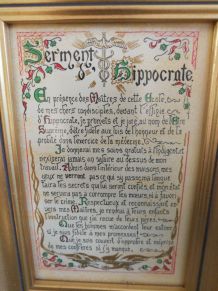 Serment
d' Hippocrate
En présence des Maîtres de cette École,
de mes chers condisciples, devant l'effigie
d'Hippocrate, je promets et je jure, au nom de l'Être
Suprême, d'être fidèle aux lois de l'honneur et de la
probité dans l'exercice de la médecine.
Je donnerai mes soins gratuits à l'indigent et
n'exigerai jamais un salaire au dessus de mon
travail. Admis dans l'intérieur des maisons, mes
yeux ne verront pas ce qui s'y passe, ma langue
taira les secrets qui lui seront confiés et mon état
ne servira pas à corrompre les mœurs ni à favori
ser le crime. Respectueux et reconnaissant en
vers mes Maîtres, je rendrai à leurs enfants
l'instruction que j'ai reçue de leurs pères.
Que les hommes m'accordent leur estime
si je suis fidèle à mes promesses!
Que je sois couvert d'opprobre et méprisé
de mes confrères si j'y manque.